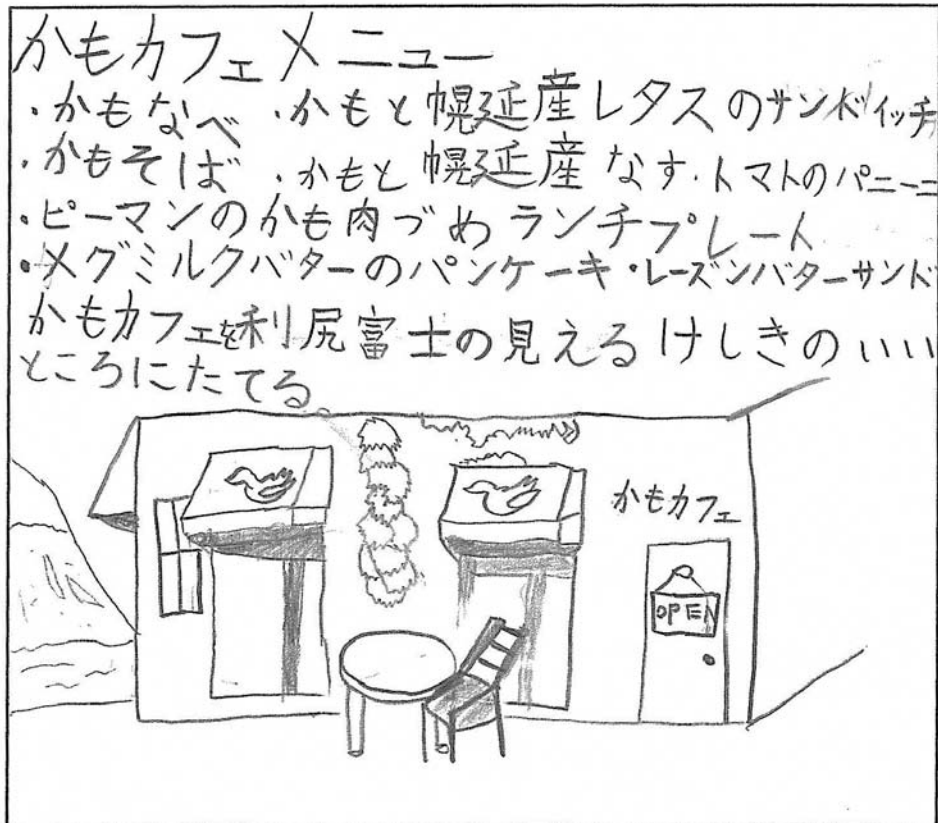 かもカフェメニュー
・かもなべ ・かもと幌延産レタスのサンドイッチ
・かもそば ・かもと幌延産なす・トマトのパニーニ
・ピーマンのかも肉づめランチプレート
・メグミルクバターのパンケーキ・レーズンバターサンド
かもカフェを利尻富士の見えるけしきのいい
ところにたてる。
かもカフェ
OPEN